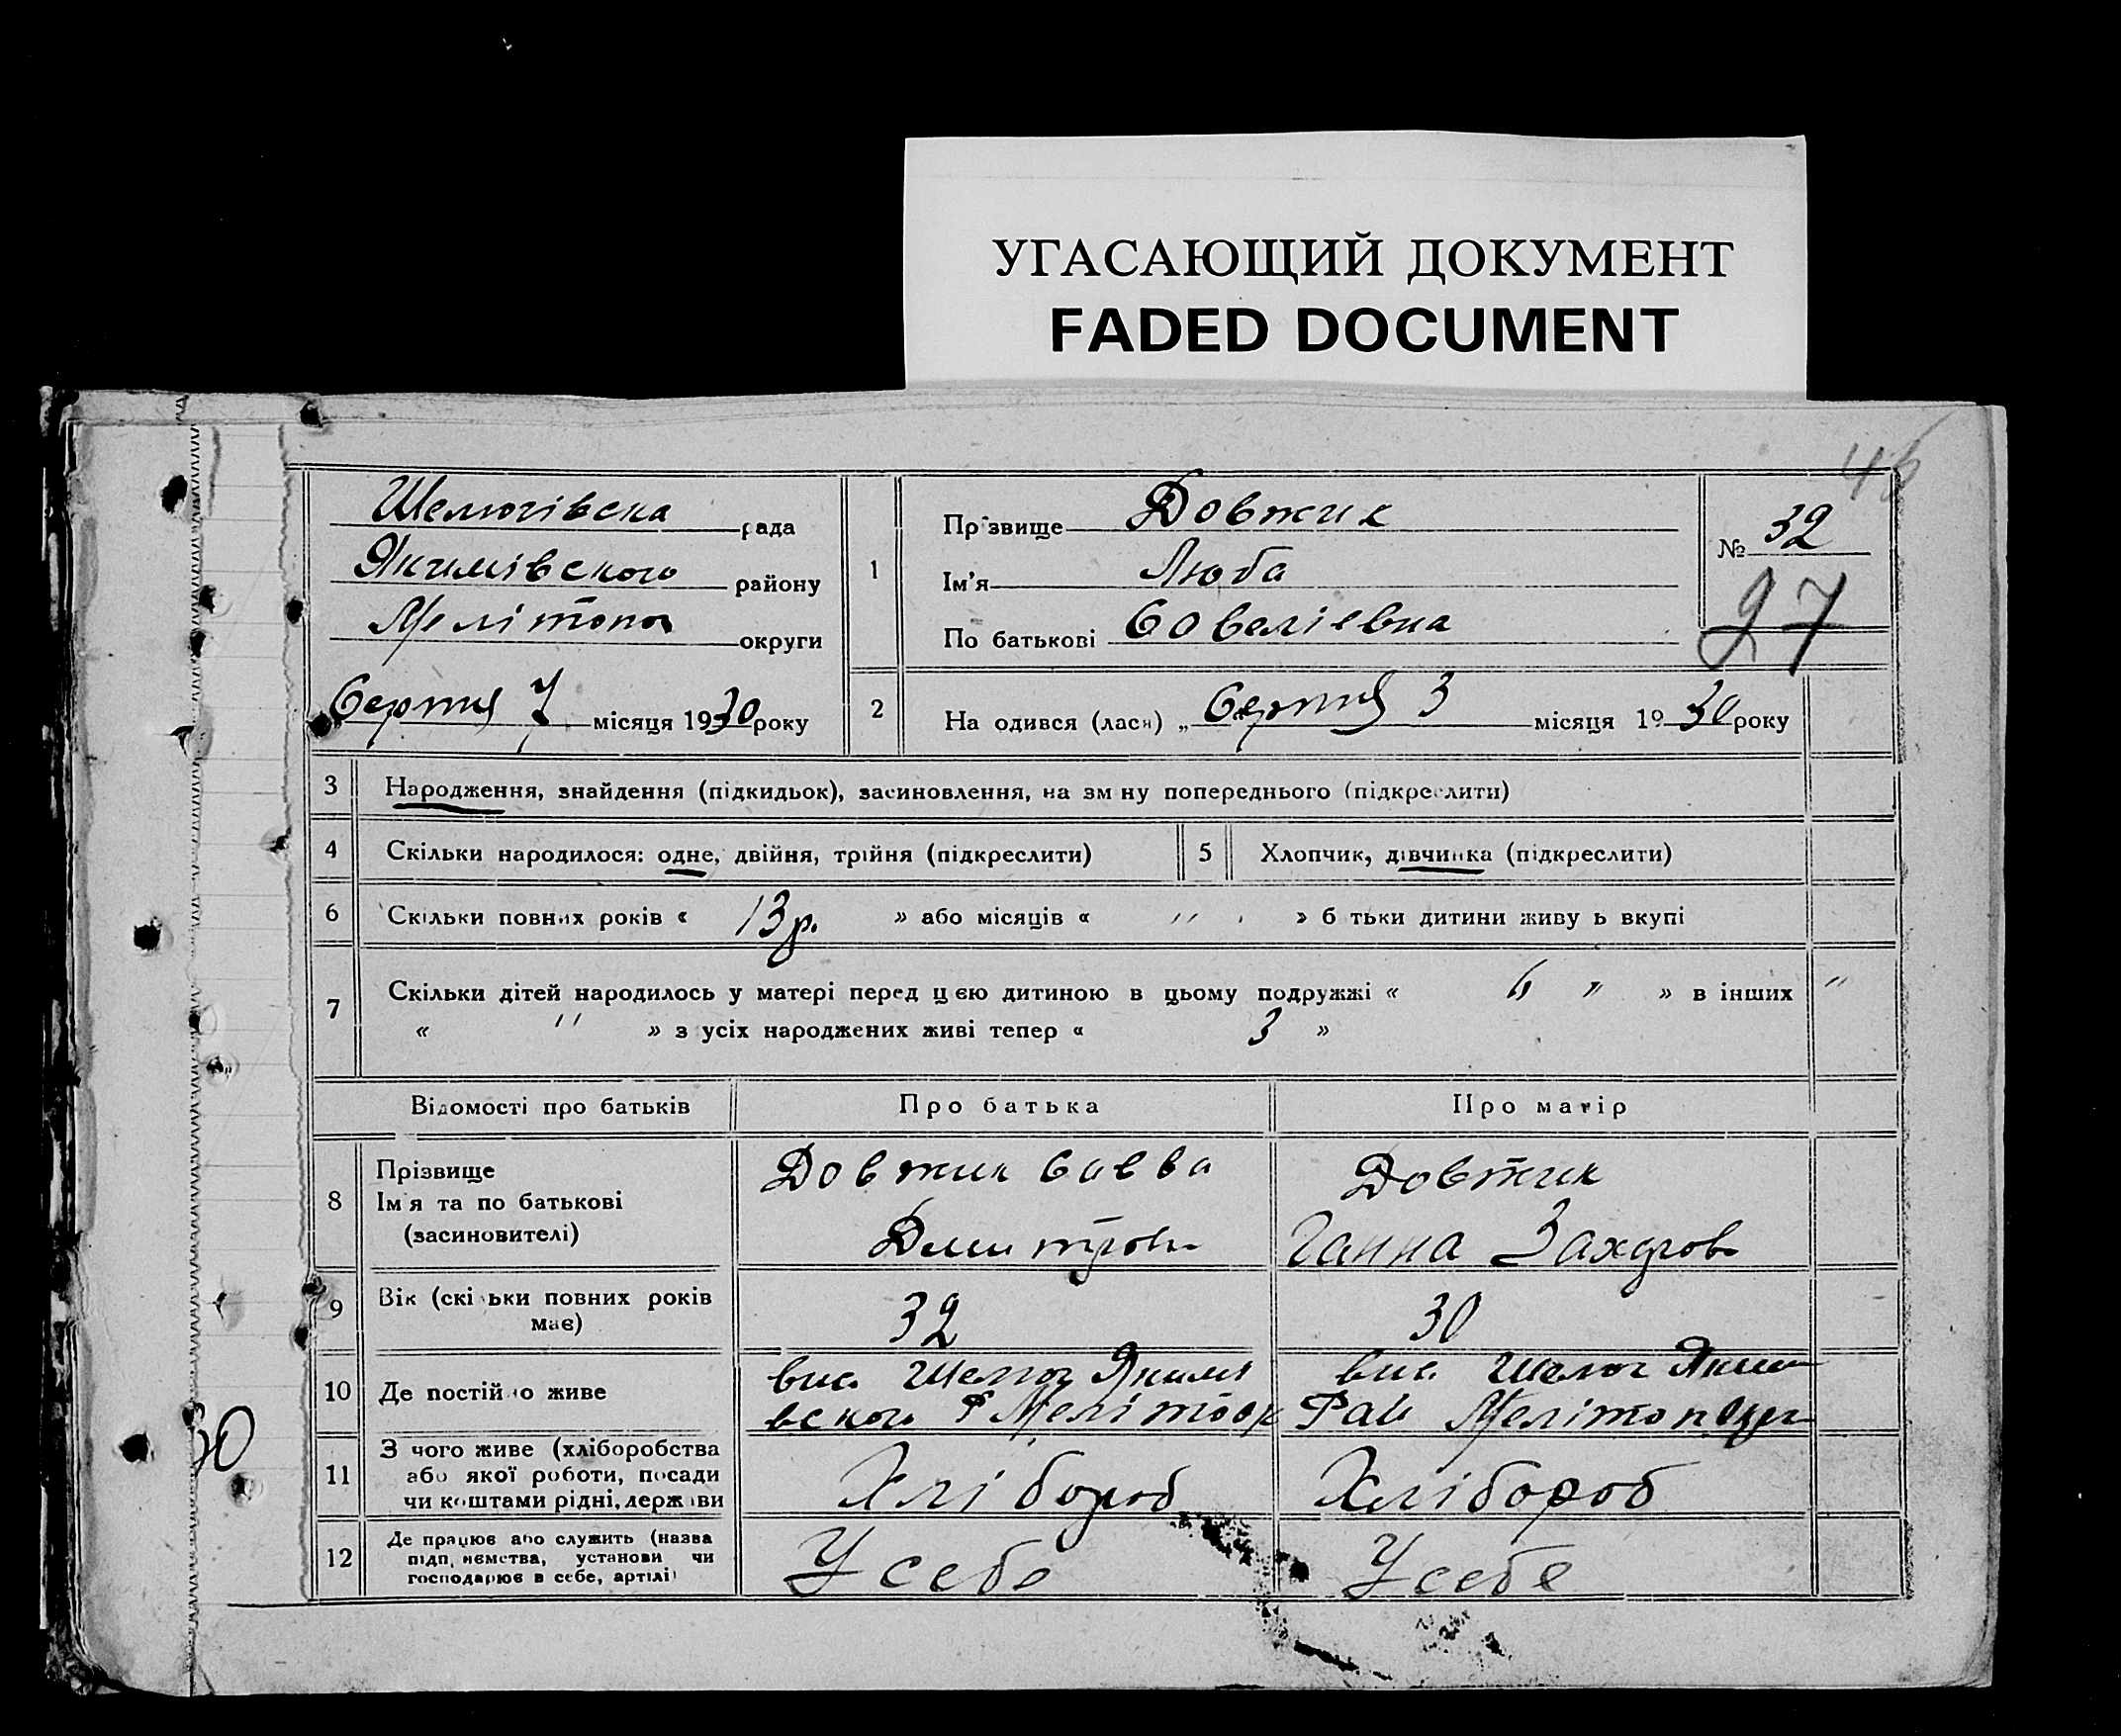 УГАСАЮЩИЙ ДОКУМЕНТ
FADED DOCUMENT
46
Шелюгівска рада
Якимівского району
Мелітопол округи
Серпня 7 місяця 1930 року
1
Прізвище Довжик
Ім'я Люба
По батькові Савеліевна
№ 32
27
2
На одився (лася) „ Серпня 3 місяця 1930 року
3 Народження, знайдення (підкидьок), засиновлення, на зм ну попереднього (підкреслити)
4 Скільки народилося: одне, двійня, трійня (підкреслити) 5 Хлопчик, дівчинка (підкреслити)
6 Скільки повних років « 13 р. » або місяців « " » б тьки дитини живу ь вкупі
7 Скільки дітей народилось у матері перед цією дитиною в цьому подружжі « 6 " » в інших "
« " » з усіх народжених живі тепер « 3 »
Відомості про батьків Про батька Про матір
8 Прізвище Довжик Савва Довжик
Ім'я та по батькові
(засиновителі) Дмитров Ганна Захаров
9 Вік (скільки повних років має) 32 30
10 Де постійно живе вис. Шелюг Якимі вис. Шелюг Яким
вского Р Меліт ок Рай Мелітоп Окр
11 З чого живе (хліборобства
або якої роботи, посади
чи коштами рідні, держави Хлібороб Хлібороб
12 Де працює або служить (назва
підп, иємства, установи чи
господарює в себе, артілі) У себе У себе
30